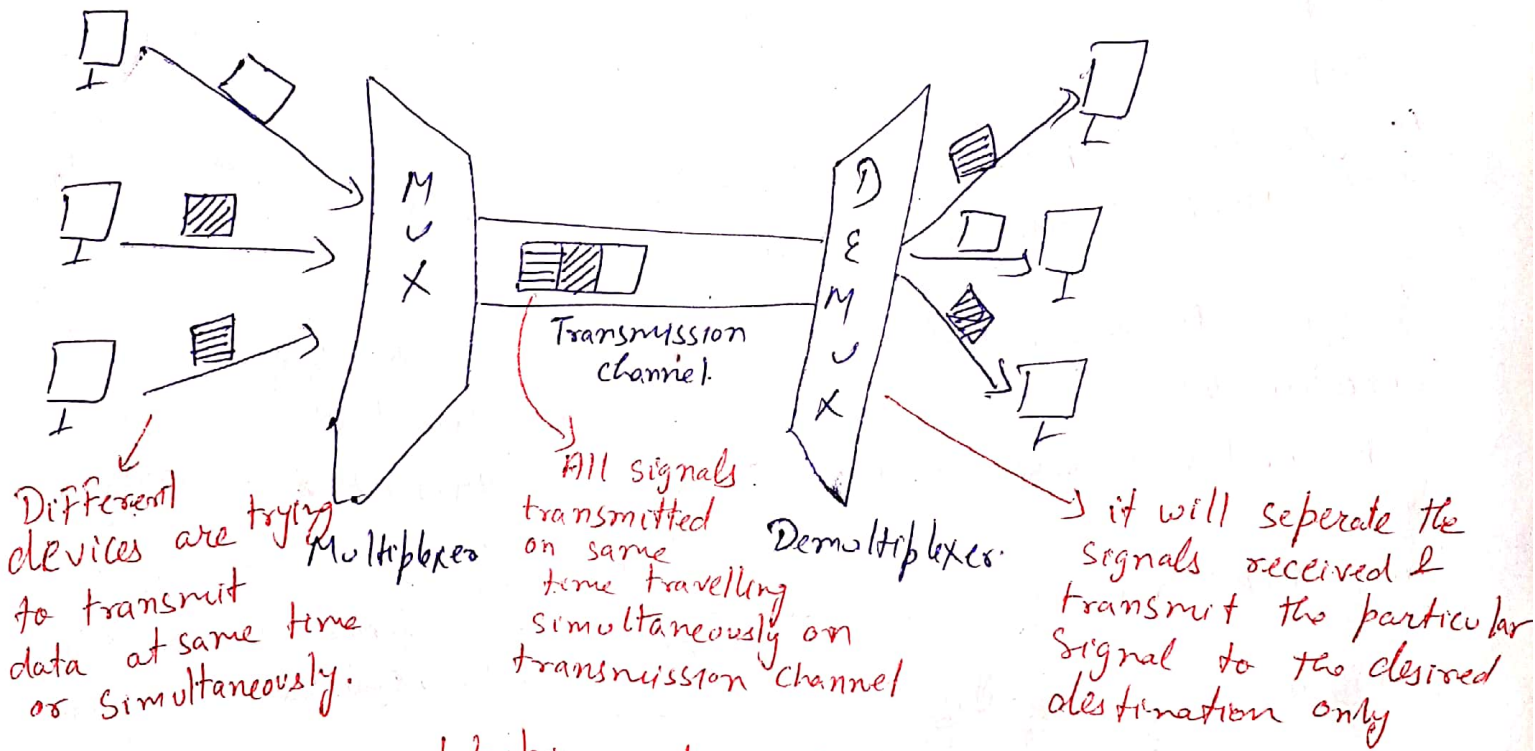 M
U
X
D
E
M
U
X
Transmission
channel.
Multiplexer
Demultiplexer.
Different
devices are trying
to transmit
data at same time
or simultaneously.
All signals
transmitted
on same
time travelling
simultaneously on
transmission channel
it will seperate the
signals received &
transmit the particular
signal to the desired
destination only